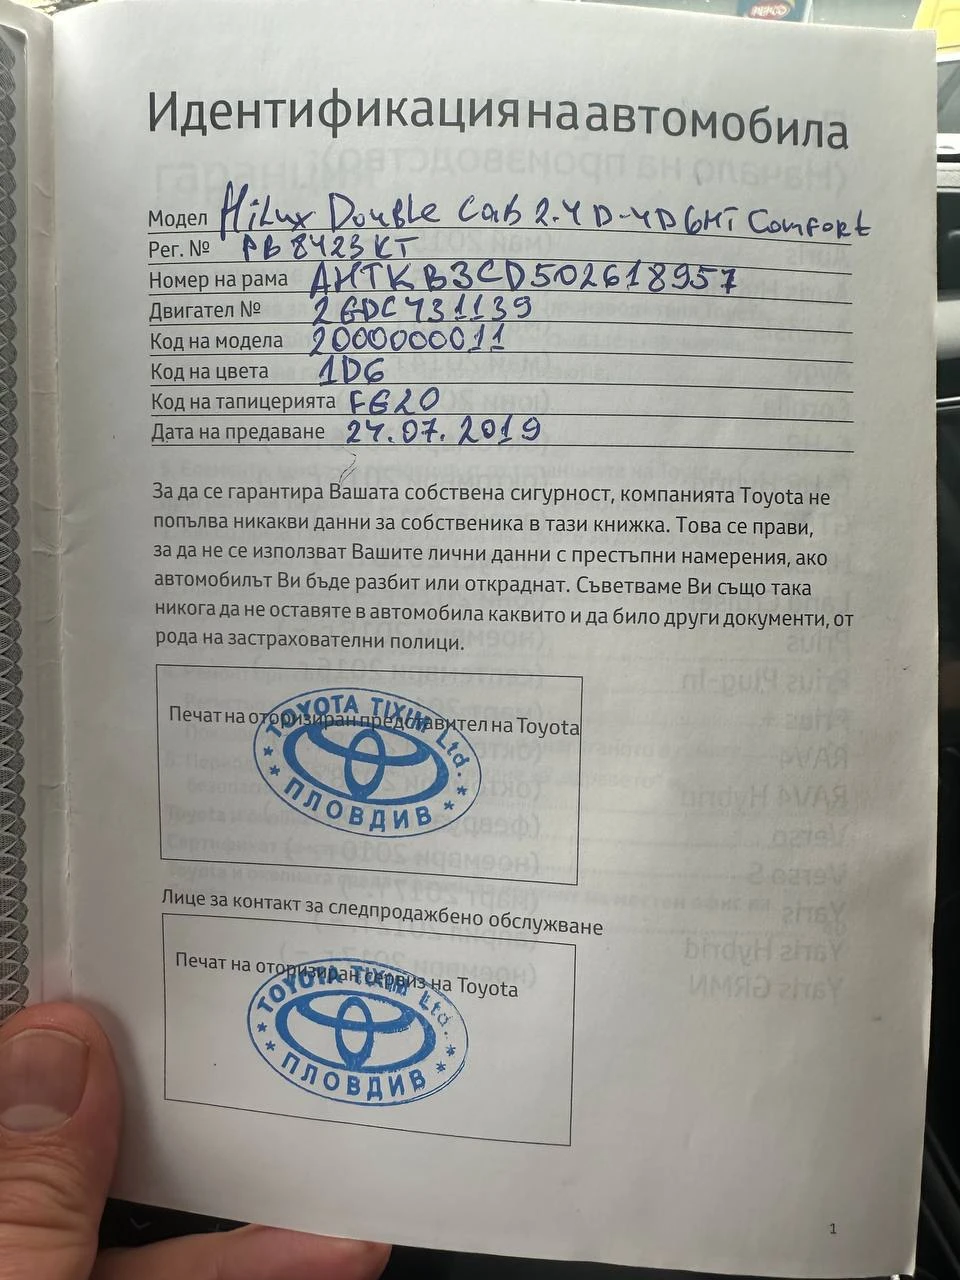 Идентификация на автомобила
Модел Hilux Double Cab 2.4 D-4D 6MT Comfort
Рег. № PB 8423 KT
Номер на рама AHTKB3CD502618957
Двигател № 2GDC731139
Код на модела 2000000011
Код на цвета 1D6
Код на тапицерията FE20
Дата на предаване 24.07.2019
За да се гарантира Вашата собствена сигурност, компанията Toyota не
попълва никакви данни за собственика в тази книжка. Това се прави,
за да не се използват Вашите лични данни с престъпни намерения, ако
автомобилът Ви бъде разбит или откраднат. Съветваме Ви също така
никога да не оставяте в автомобила каквито и да било други документи, от
рода на застрахователни полици.
Печат на оторизиран представител на Toyota
TOYOTA TIXIM Ltd.
ПЛОВДИВ
Лице за контакт за следпродажбено обслужване
Печат на оторизиран сервиз на Toyota
TOYOTA TIXIM Ltd.
ПЛОВДИВ
1